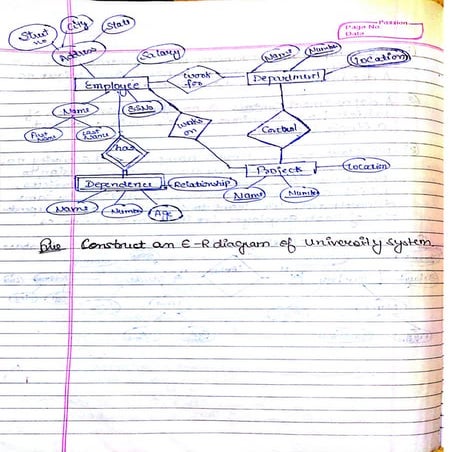 Passion
Page No.
Date
City
State
Street
no
Address
Salary
Name
Number
Location
Employee
Work
for
Department
Name
SSNo
First
Name
Last
Name
Works
on
Control
has
Projects
Location
Dependence
Relationship
Name
Number
Name
Number
Age
Que Construct an E-R diagram of university system